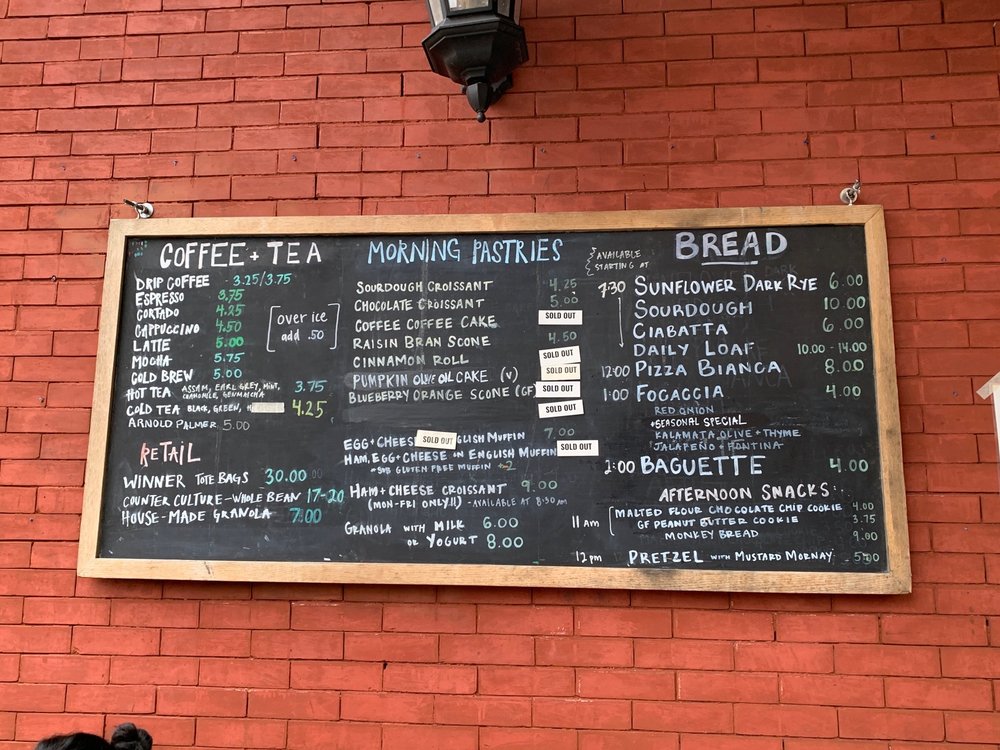 COFFEE + TEA
DRIP COFFEE - 3.25/3.75
ESPRESSO 3.75
CORTADO 4.25
CAPPUCCINO 4.50
LATTE 5.00
MOCHA 5.75
COLD BREW 5.00
over ice
add .50
HOT TEA ASSAM, EARL GREY, MINT, CHAMOMILE, GENMAICHA 3.75
COLD TEA BLACK, GREEN, 4.25
ARNOLD PALMER 5.00
RETAIL
WINNER TOTE BAGS 30.00
COUNTER CULTURE - WHOLE BEAN 17-20
HOUSE-MADE GRANOLA 7.00
MORNING PASTRIES
SOURDOUGH CROISSANT 4.25
CHOCOLATE CROISSANT 5.00
COFFEE COFFEE CAKE SOLD OUT
RAISIN BRAN SCONE 4.50
CINNAMON ROLL SOLD OUT
PUMPKIN OLIVE OIL CAKE (V) SOLD OUT
BLUEBERRY ORANGE SCONE (GF) SOLD OUT
SOLD OUT
EGG + CHEESE SOLD OUT ENGLISH MUFFIN 7.00
HAM, EGG + CHEESE ON ENGLISH MUFFIN SOLD OUT
*SUB GLUTEN FREE MUFFIN +2
HAM + CHEESE CROISSANT 9.00
(MON-FRI ONLY!!) - AVAILABLE AT 8:30AM
GRANOLA WITH MILK 6.00
OR YOGURT 8.00
AVAILABLE
STARTING AT
BREAD
7:30 SUNFLOWER DARK RYE 6.00
SOURDOUGH 10.00
CIABATTA 6.00
DAILY LOAF 10.00 - 14.00
12:00 PIZZA BIANCA 8.00
1:00 FOCACCIA 4.00
RED ONION
+SEASONAL SPECIAL
KALAMATA OLIVE + THYME
JALAPEÑO + FONTINA
1:00 BAGUETTE 4.00
AFTERNOON SNACKS:
11 AM MALTED FLOUR CHOCOLATE CHIP COOKIE 4.00
GF PEANUT BUTTER COOKIE 3.75
MONKEY BREAD 9.00
12 PM PRETZEL WITH MUSTARD MORNAY 5.50